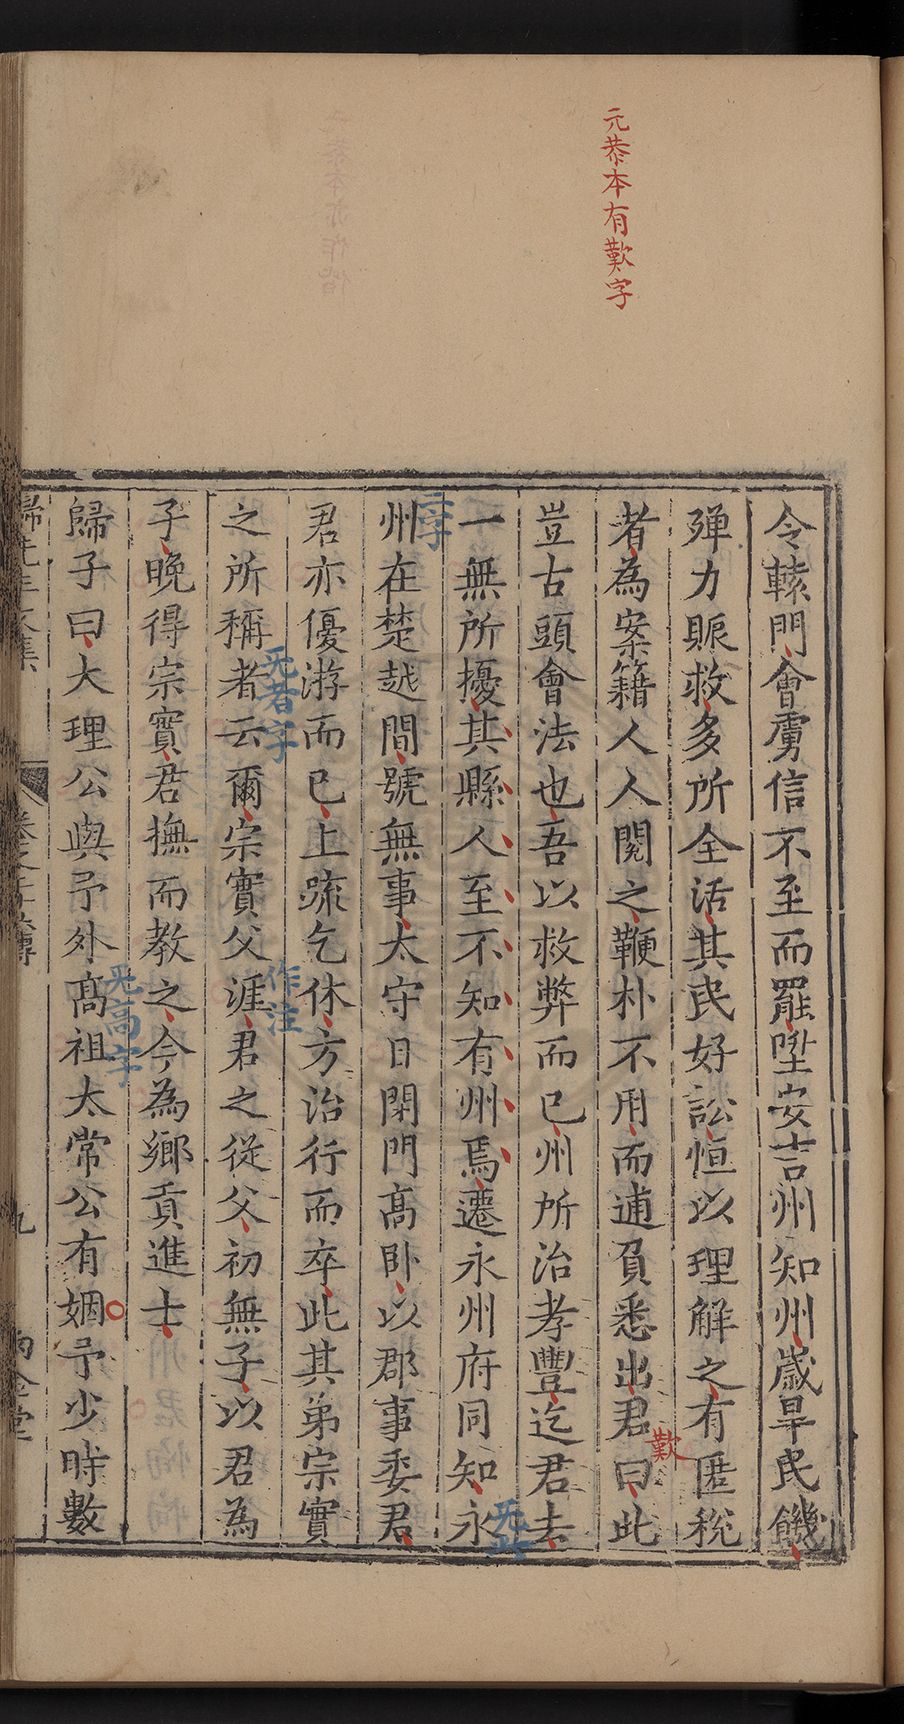 元恭本有歎字
令轅門會虜信不至而罷陞安吉州知州歲旱民饑
殫力賑救多所全活其民好訟恒以理解之有匿稅
者為案籍人人閱之鞭朴不用而逋負悉出君曰此
歎
豈古頭會法也吾以救弊而已州所治孝豐迄君去
一無所擾其縣人至不知有州焉遷永州府同知永
无此
二字
州在楚越間號無事太守日閉門高臥以郡事委君
君亦優游而已上疏乞休方治行而卒此其弟宗實
之所稱者云爾宗實父涯君之從父初無子以君為
无者字
作注
子晚得宗實君撫而教之今為鄉貢進士
歸子曰大理公與予外高祖太常公有姻予少時數
无高字
歸先生文集
九